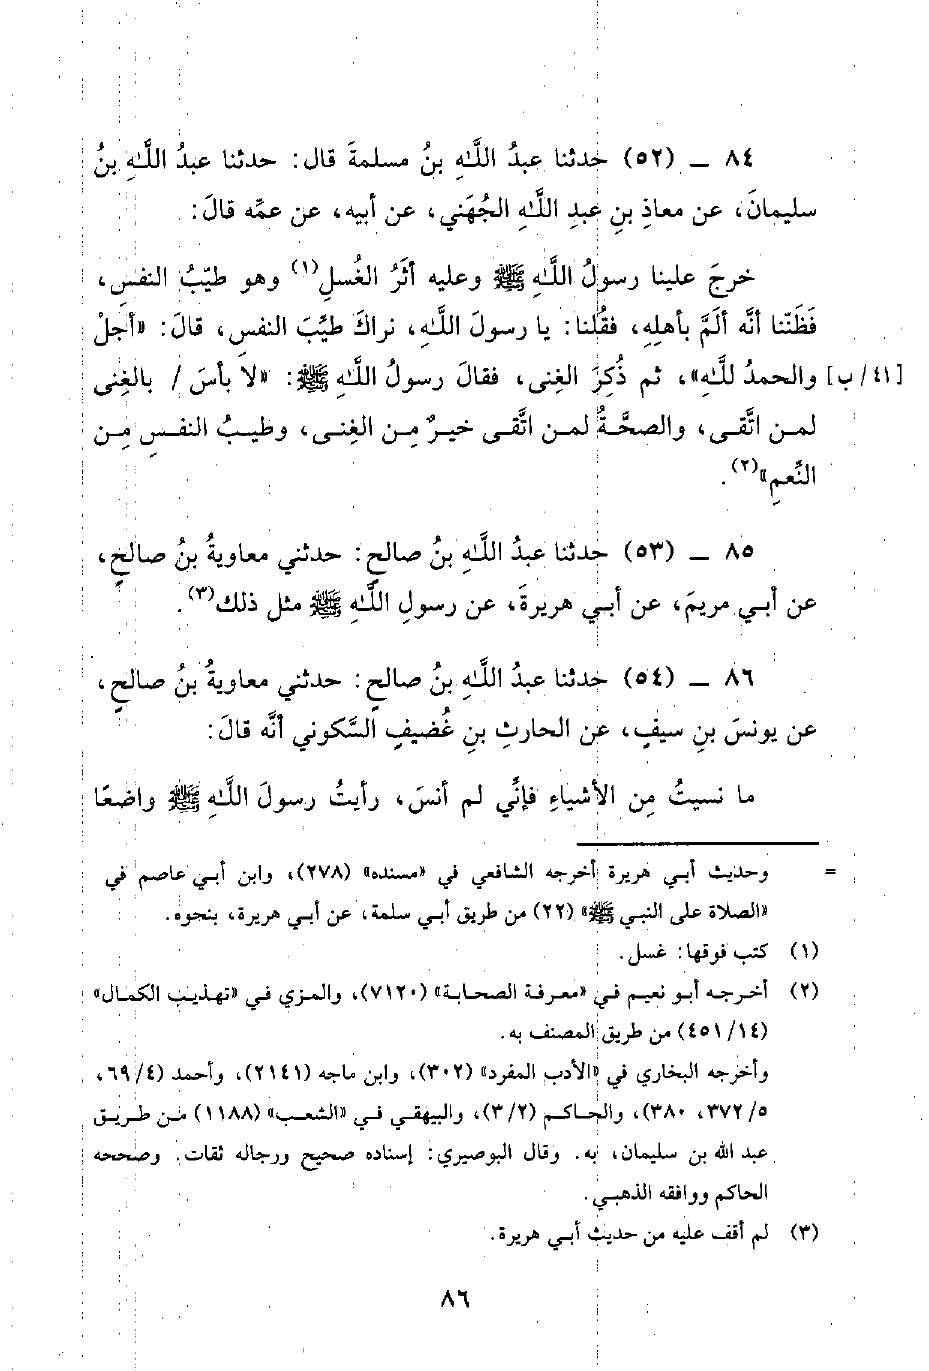 ٨٤ ــ (٥٢) حدثنا عبدُ اللَّهِ بنُ مسلمةَ قال: حدثنا عبدُ اللَّهِ بنُ
سليمانَ، عن معاذِ بنِ عبدِ اللَّهِ الجُهَني، عن أبيه، عن عمِّه قالَ:
خرجَ علينا رسولُ اللَّهِ ﷺ وعليه أثَرُ الغُسلِ(١) وهو طيّبُ النفسِ،
فَظَنّنا أنَّه ألَمَّ بأهلِهِ، فقُلنا: يا رسولَ اللَّهِ، نراكَ طيِّبَ النفسِ، قالَ: «أجلْ
[٤١/ ب] والحمدُ للَّهِ»، ثم ذُكِرَ الغِنى، فقالَ رسولُ اللَّهِ ﷺ: «لا بأسَ / بالغِنى
لمن اتَّقى، والصحَّةُ لمن اتَّقى خيرٌ مِن الغِنى، وطيبُ النفسِ مِن
النَّعمِ»(٢).
٨٥ ــ (٥٣) حدثنا عبدُ اللَّهِ بنُ صالحٍ: حدثني معاويةُ بنُ صالحٍ،
عن أبي مريمَ، عن أبي هريرةَ، عن رسولِ اللَّهِ ﷺ مثل ذلك(٣).
٨٦ ــ (٥٤) حدثنا عبدُ اللَّهِ بنُ صالحٍ: حدثني معاويةُ بنُ صالحٍ،
عن يونسَ بنِ سيفٍ، عن الحارثِ بنِ غُضيفٍ السَّكوني أنَّه قالَ:
ما نسيتُ مِن الأشياءِ فإنَّي لم أنسَ، رأيتُ رسولَ اللَّهِ ﷺ واضعًا
= وحديث أبي هريرة أخرجه الشافعي في «مسنده» (٢٧٨)، وابن أبي عاصم في
«الصلاة على النبي ﷺ» (٢٢) من طريق أبي سلمة، عن أبي هريرة، بنحوه.
(١) كتب فوقها: غسل.
(٢) أخرجه أبو نعيم في «معرفة الصحابة» (٧١٢٠)، والمزي في «تهذيب الكمال»
(٤٥١/١٤) من طريق المصنف به.
وأخرجه البخاري في «الأدب المفرد» (٣٠٢)، وابن ماجه (٢١٤١)، وأحمد (٦٩/٤،
٣٧٢/٥، ٣٨٠)، والحاكم (٣/٢)، والبيهقي في «الشعب» (١١٨٨) من طريق
عبد الله بن سليمان، به. وقال البوصيري: إسناده صحيح ورجاله ثقات. وصححه
الحاكم ووافقه الذهبي.
(٣) لم أقف عليه من حديث أبي هريرة.
٨٦